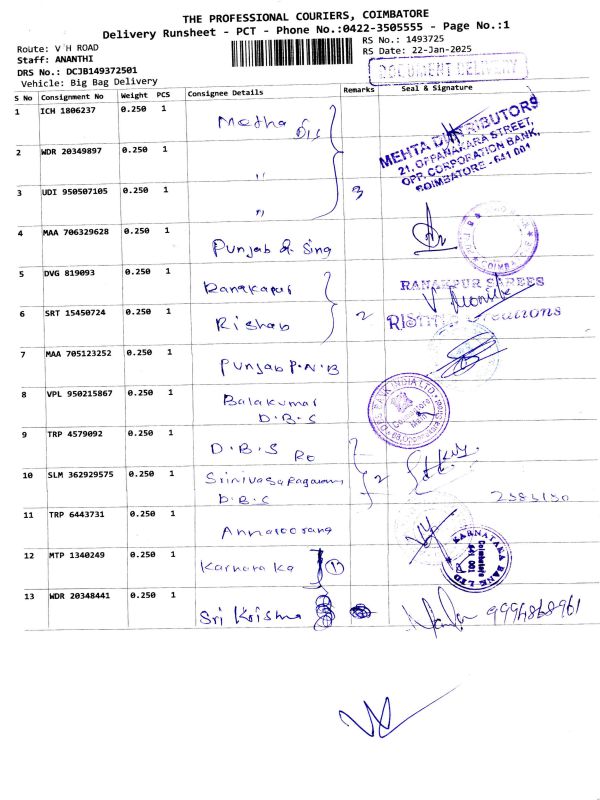 THE PROFESSIONAL COURIERS, COIMBATORE
Delivery Runsheet - PCT - Phone No.:0422-3505555 - Page No.:1
Route: V H ROAD
RS No.: 1493725
Staff: ANANTHI
RS Date: 22-Jan-2025
DRS No.: DCJB149372501
Vehicle: Big Bag Delivery
DOCUMENT DELIVERY
S No Consignment No Weight PCS Consignee Details Remarks Seal & Signature
1 ICH 1806237 0.250 1 Metha Dis
MEHTA DISTRIBUTORS
21, OPPANAKARA STREET,
OPP. CORPORATION BANK,
COIMBATORE - 641 001
2 WDR 20349897 0.250 1 "
3 UDI 950507105 0.250 1 " 3
4 MAA 706329628 0.250 1 Punjab & Sing
COIMBA
5 DVG 819093 0.250 1 Ranakapur
RANAKPUR SAREES
6 SRT 15450724 0.250 1 Rishab 2
Creations
7 MAA 705123252 0.250 1 Punjab P.N.B
8 VPL 950215867 0.250 1 Balakumar
D.B.S
BANK INDIA LTD.
9 TRP 4579092 0.250 1 D.B.S Re
10 SLM 362929575 0.250 1 Srinivasaragavan 2
D.B.S
11 TRP 6443731 0.250 1
12 MTP 1340249 0.250 1 Karnataka
KARNATAKA BANK LTD
Coimbatore
641 001
13 WDR 20348441 0.250 1 Sri Krisma
9994868961